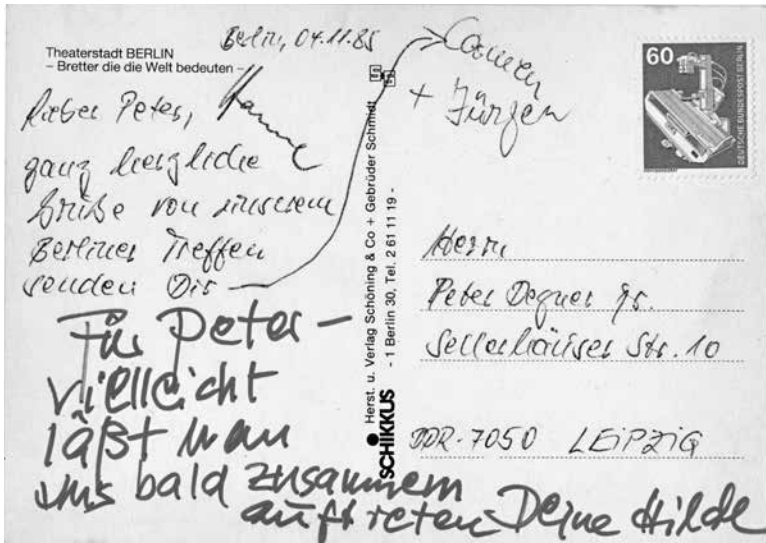 Theaterstadt BERLIN
– Bretter die die Welt bedeuten –
Berlin, 04.11.85
Lieber Peter,
ganz herzliche
Grüße von unserem
Berliner Treffen
senden Dir
Carmen
+ Jürgen
Für Peter –
vielleicht
läßt man
uns bald zusammen
auftreten Deine Hilde
SCHIKKUS
Herst. u. Verlag Schöning & Co + Gebrüder Schmidt
- 1 Berlin 30, Tel. 2 61 11 19 -
60
DEUTSCHE BUNDESPOST BERLIN
Herrn
Peter Degner jr.
Sellerhäuser Str. 10
DDR-7050 LEIPZIG